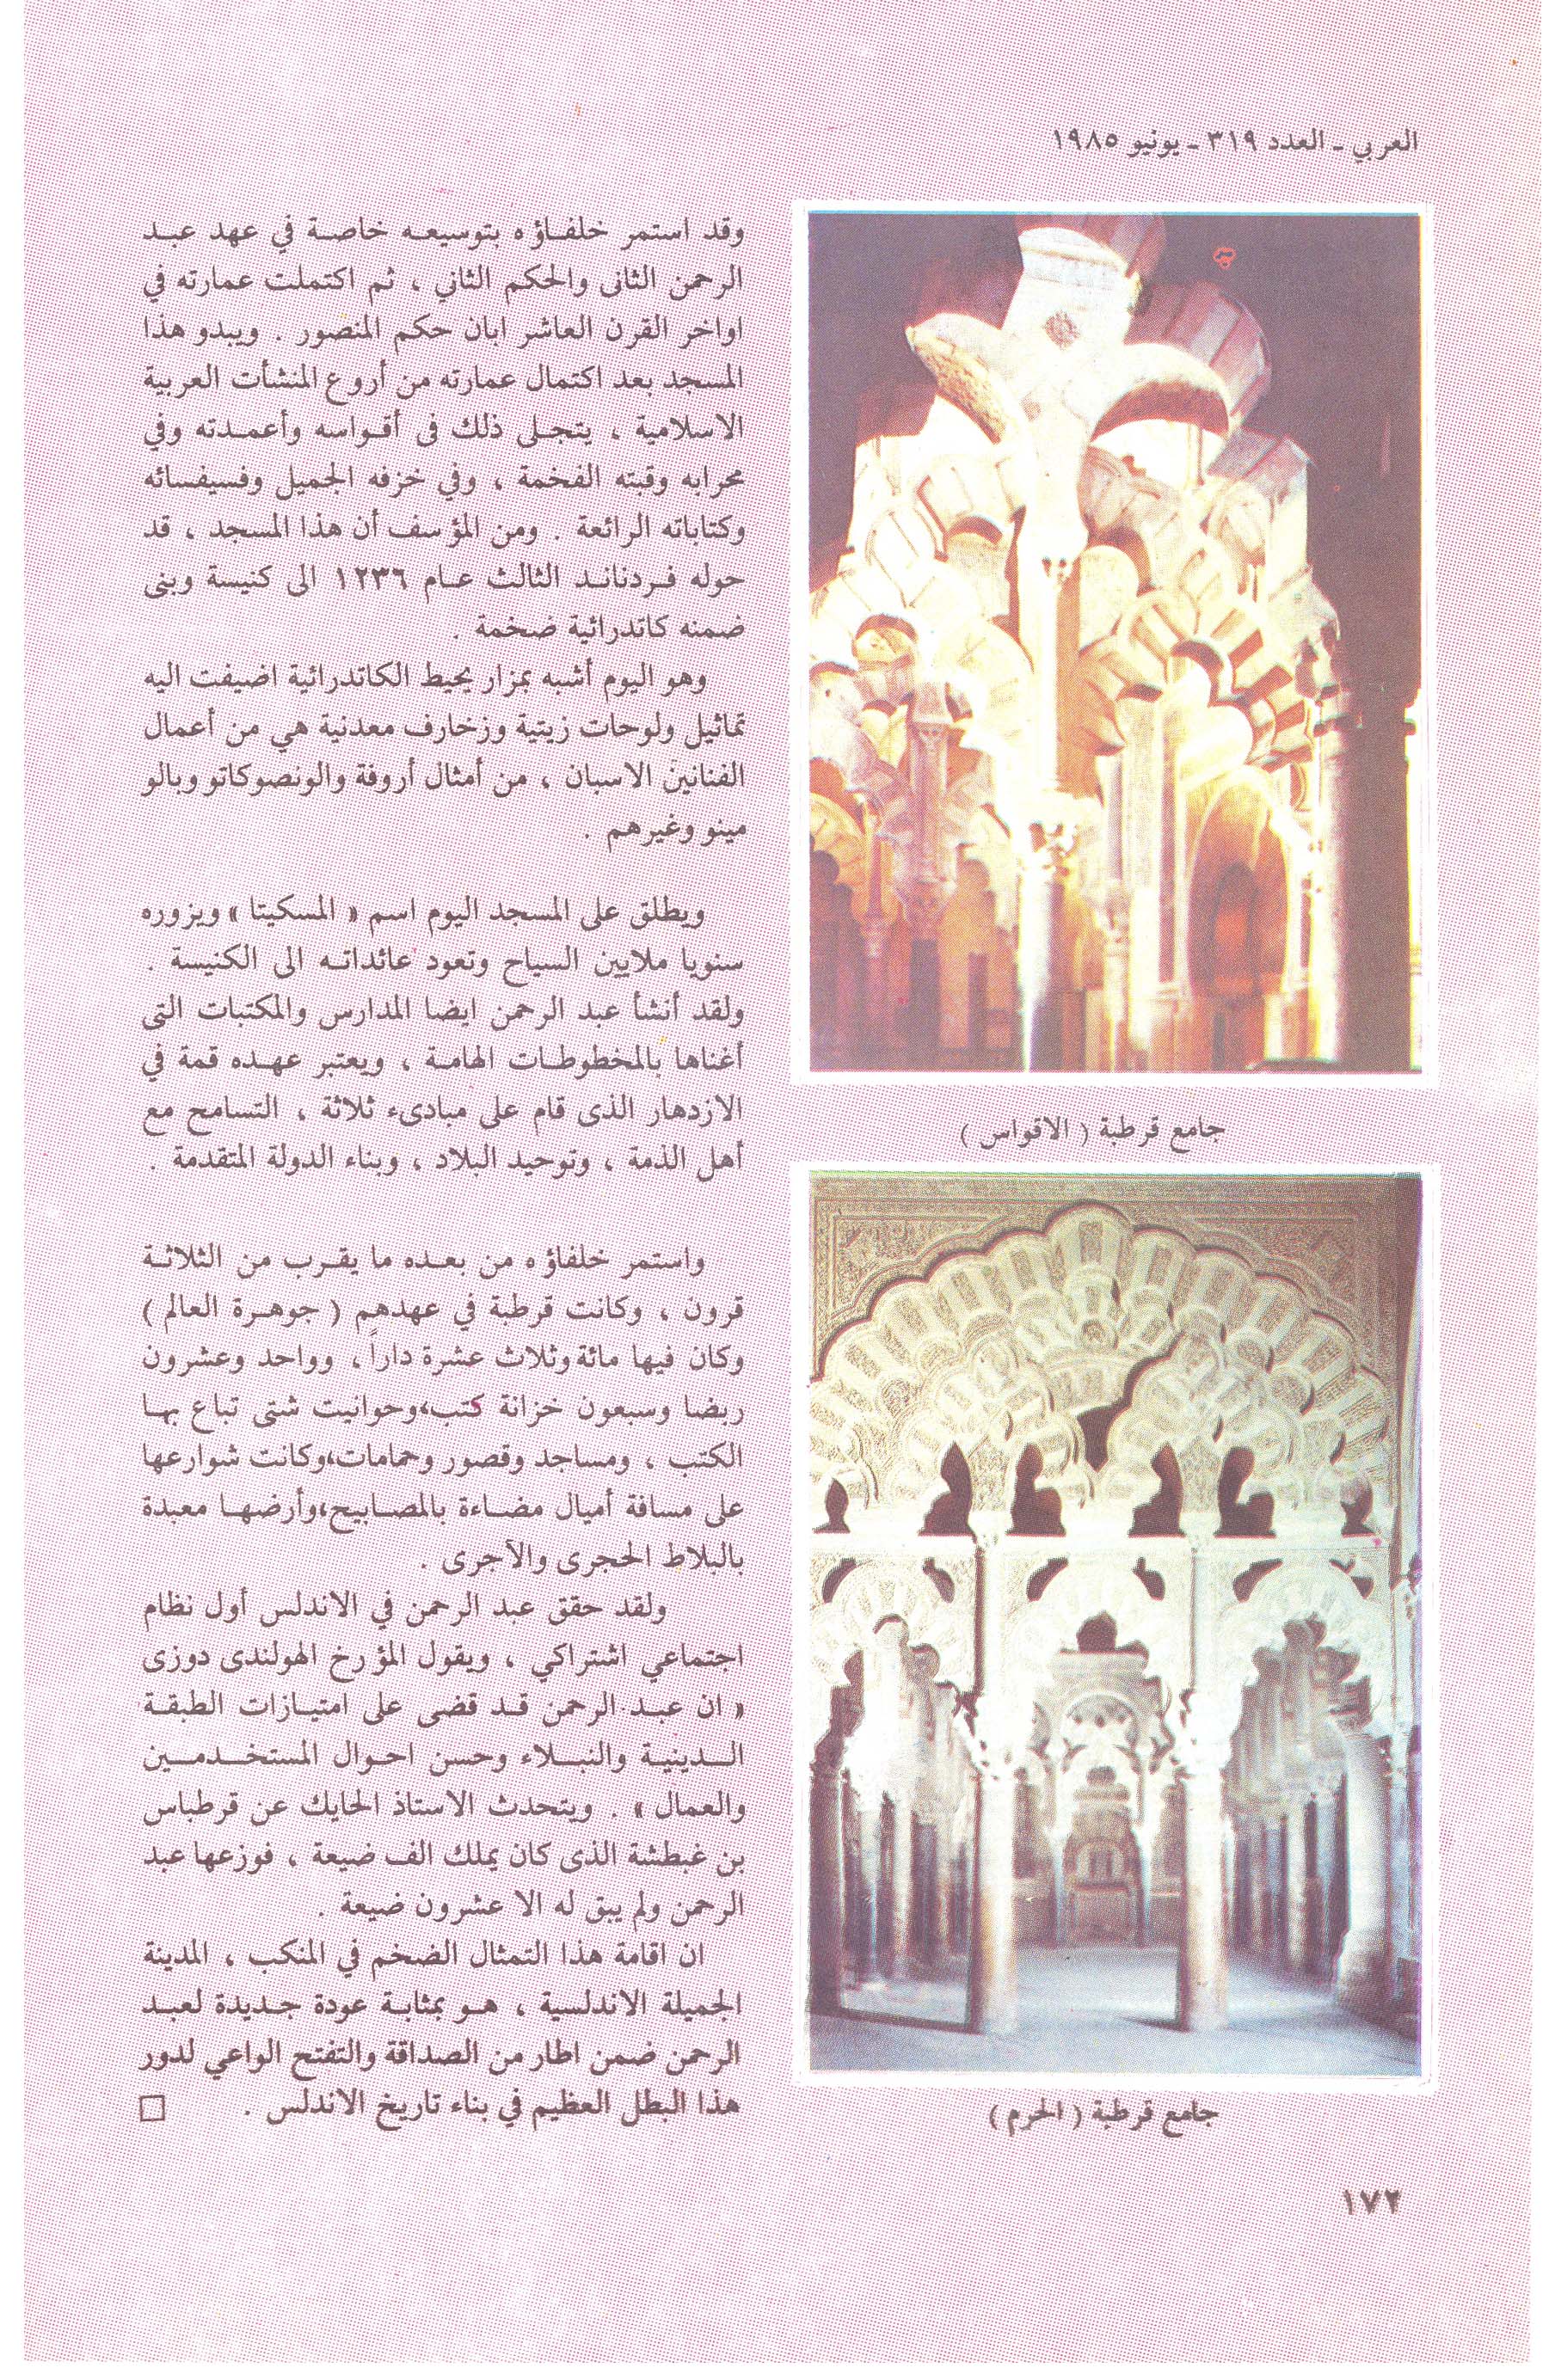 العربي ـ العدد ٣١٩ ـ يونيو ١٩٨٥
جامع قرطبة ( الاقواس )
جامع قرطبة ( الحرم )
وقد استمر خلفاؤه بتوسيعه خاصة في عهد عبد
الرحمن الثانى والحكم الثاني ، ثم اكتملت عمارته في
اواخر القرن العاشر ابان حكم المنصور . ويبدو هذا
المسجد بعد اكتمال عمارته من أروع المنشأت العربية
الاسلامية ، يتجلى ذلك فى أقواسه وأعمدته وفي
محرابه وقبته الفخمة ، وفي خزفه الجميل وفسيفسائه
وكتاباته الرائعة . ومن المؤسف أن هذا المسجد ، قد
حوله فردناند الثالث عام ١٢٣٦ الى كنيسة وبنى
ضمنه كاتدرائية ضخمة .
وهو اليوم أشبه بمزار يحيط الكاتدرائية اضيفت اليه
تماثيل ولوحات زيتية وزخارف معدنية هي من أعمال
الفنانين الاسبان ، من أمثال أروفة والونصوكاتو وبالو
مينو وغيرهم .
ويطلق على المسجد اليوم اسم « المسكيتا » ويزوره
سنويا ملايين السياح وتعود عائداته الى الكنيسة .
ولقد أنشأ عبد الرحمن ايضا المدارس والمكتبات التى
أغناها بالمخطوطات الهامة ، ويعتبر عهده قمة في
الازدهار الذى قام على مبادىء ثلاثة ، التسامح مع
أهل الذمة ، وتوحيد البلاد ، وبناء الدولة المتقدمة .
واستمر خلفاؤه من بعده ما يقرب من الثلاثة
قرون ، وكانت قرطبة في عهدهم ( جوهرة العالم )
وكان فيها مائة وثلاث عشرة داراً ، وواحد وعشرون
ربضا وسبعون خزانة كتب،وحوانيت شتى تباع بها
الكتب ، ومساجد وقصور وحمامات،وكانت شوارعها
على مسافة أميال مضاءة بالمصابيح،وأرضها معبدة
بالبلاط الحجرى والآجرى .
ولقد حقق عبد الرحمن في الاندلس أول نظام
اجتماعي اشتراكي ، ويقول المؤرخ الهولندى دوزى
« ان عبد الرحمن قد قضى على امتيازات الطبقة
الدينية والنبلاء وحسن احوال المستخدمين
والعمال » . ويتحدث الاستاذ الحايك عن قرطباس
بن غبطشة الذى كان يملك الف ضيعة ، فوزعها عبد
الرحمن ولم يبق له الا عشرون ضيعة .
ان اقامة هذا التمثال الضخم في المنكب ، المدينة
الجميلة الاندلسية ، هو بمثابة عودة جديدة لعبد
الرحمن ضمن اطار من الصداقة والتفتح الواعي لدور
هذا البطل العظيم في بناء تاريخ الاندلس .
١٧٢